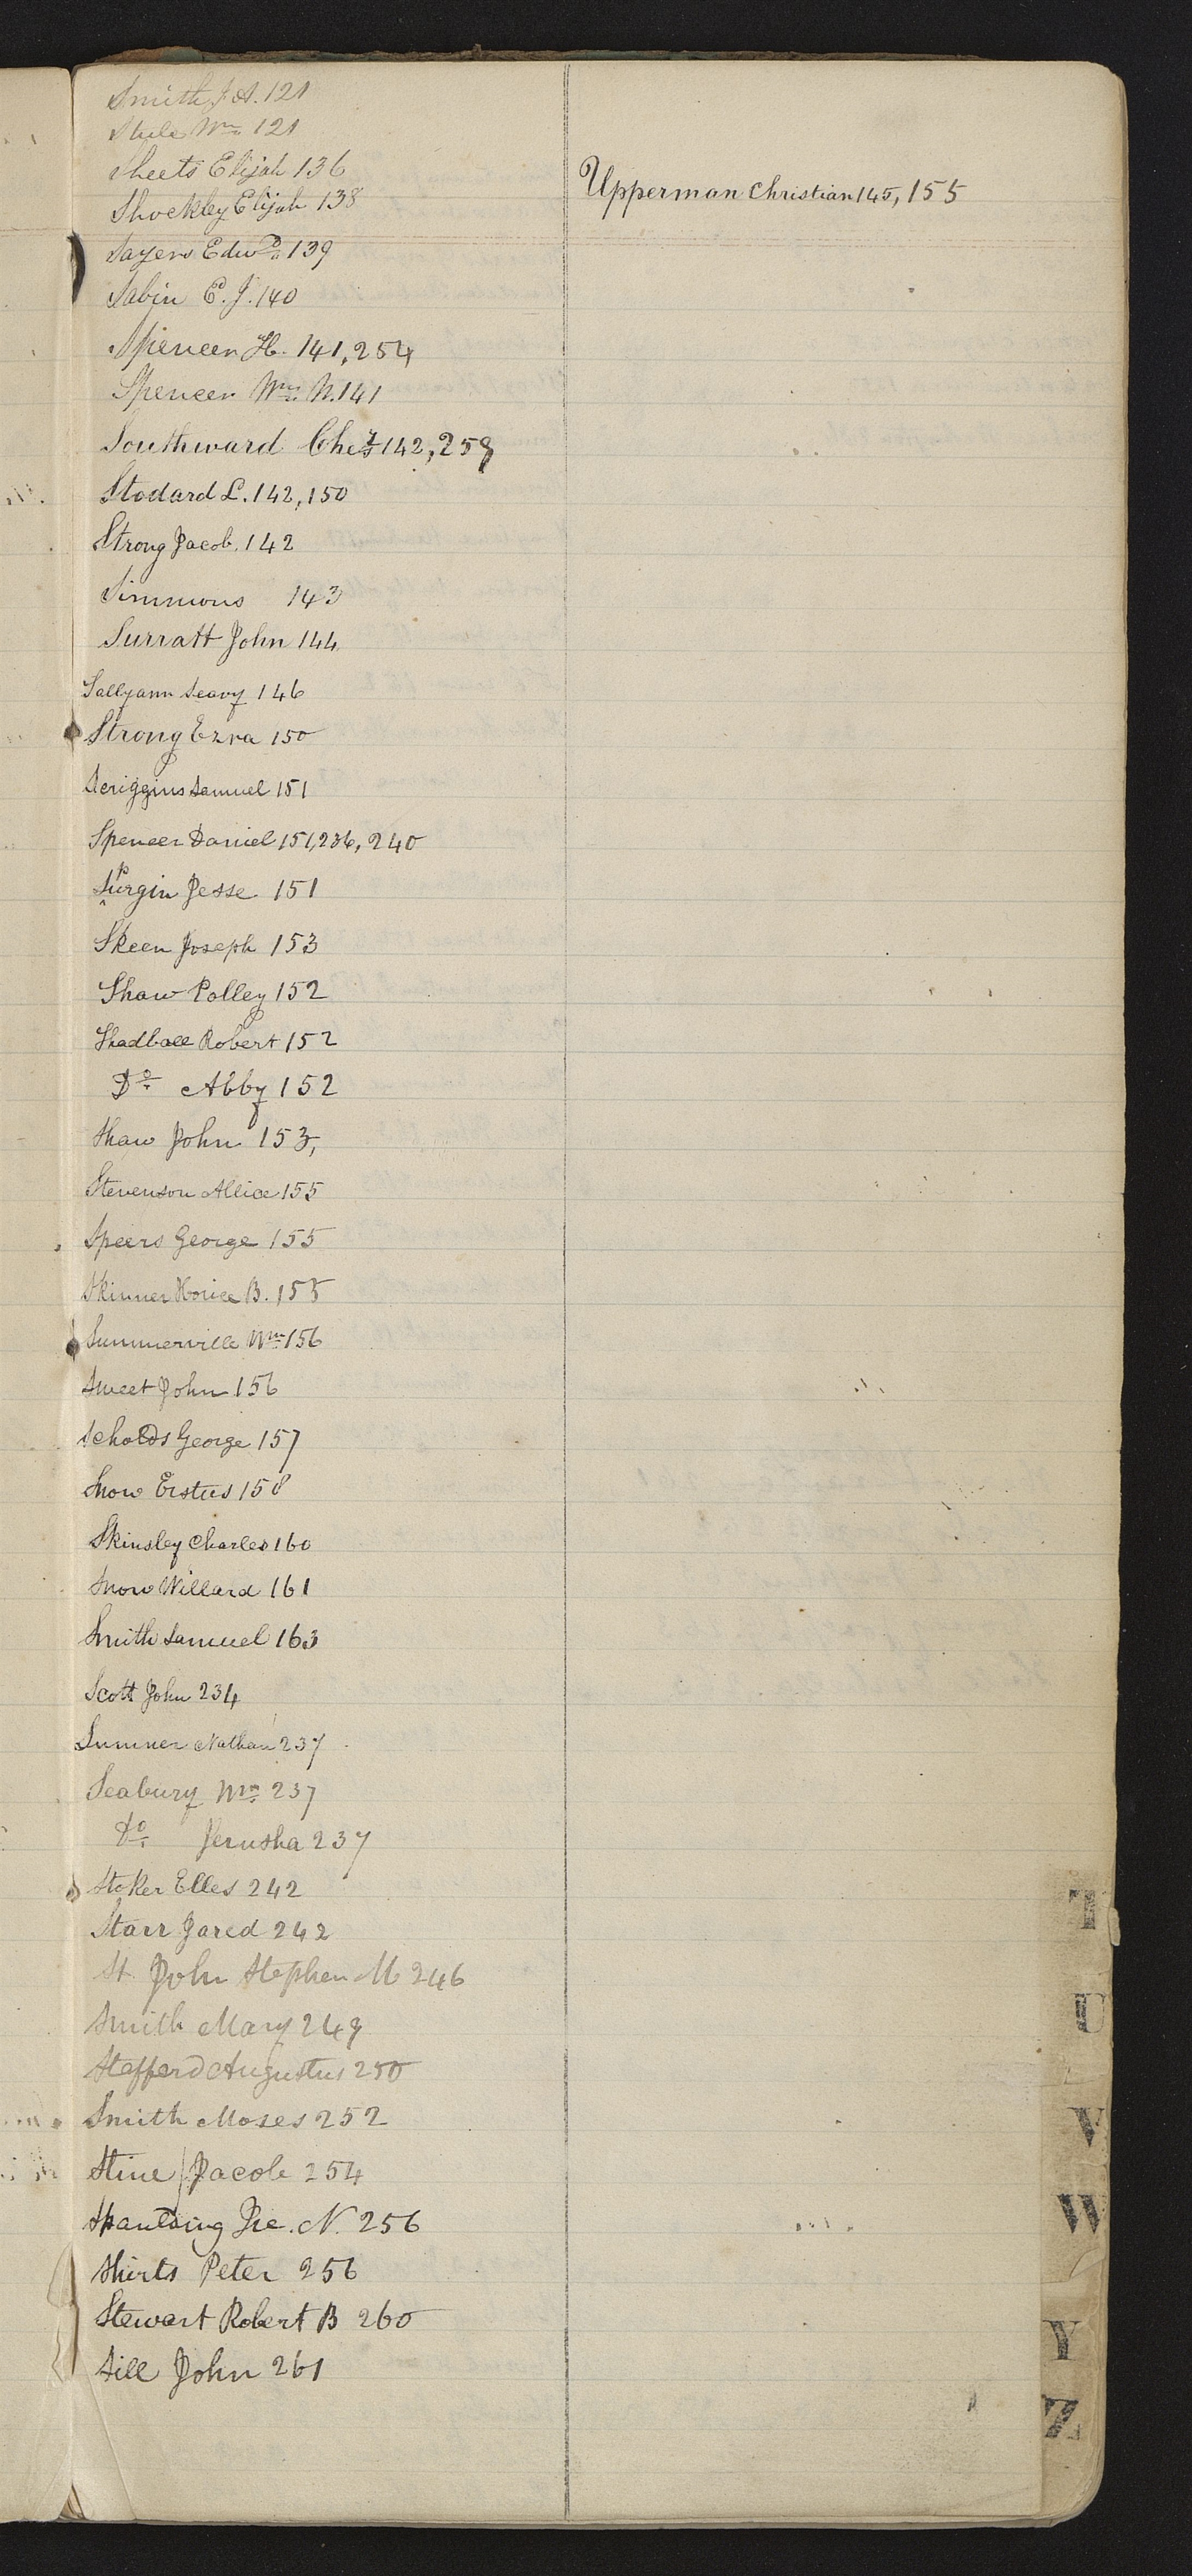 Smith J. A. 121
Stule Wm 121
Sheets Elijah 136
Shockley Elijah 138
Sayers Edwd 139
Sabin E. J. 140
Spencer H. 141, 254
Spencer Wm W. 141
Southward Ches 142, 258
Stodard L. 142, 150
Strong Jacob. 142
Simmons 143
Surratt John 144
Sallyann Seavy 146
Strong Ezra 150
Scriggins Samuel 151
Spencer Daniel 151, 236, 240
Spurgin Jesse 151
Skeen Joseph 153
Shaw Polley 152
Shadball Robert 152
Do Abby 152
Shaw John 153,
Stevenson Allice 155
Speers George 155
Skinner Horice B. 155
Summerville Wm 156
Sweet John 156
Scholds George 157
Snow Erstus 158
Skinsley Charles 160
Snow Willard 161
Smith Samuel 163
Scott John 234
Sumner Nathan 237
Seabury Wm 237
Do Jerusha 237
Stoker Elles 242
Starr Jared 242
St John Stephen M 246
Smith Mary 248
Stafford Augustus 250
Smith Moses 252
Stine Jacob 254
N. 256
Shirts Peter 256
Stewart Robert B 260
Sill John 261
Upperman Christian 145, 155
T
U
V
W
Y
Z